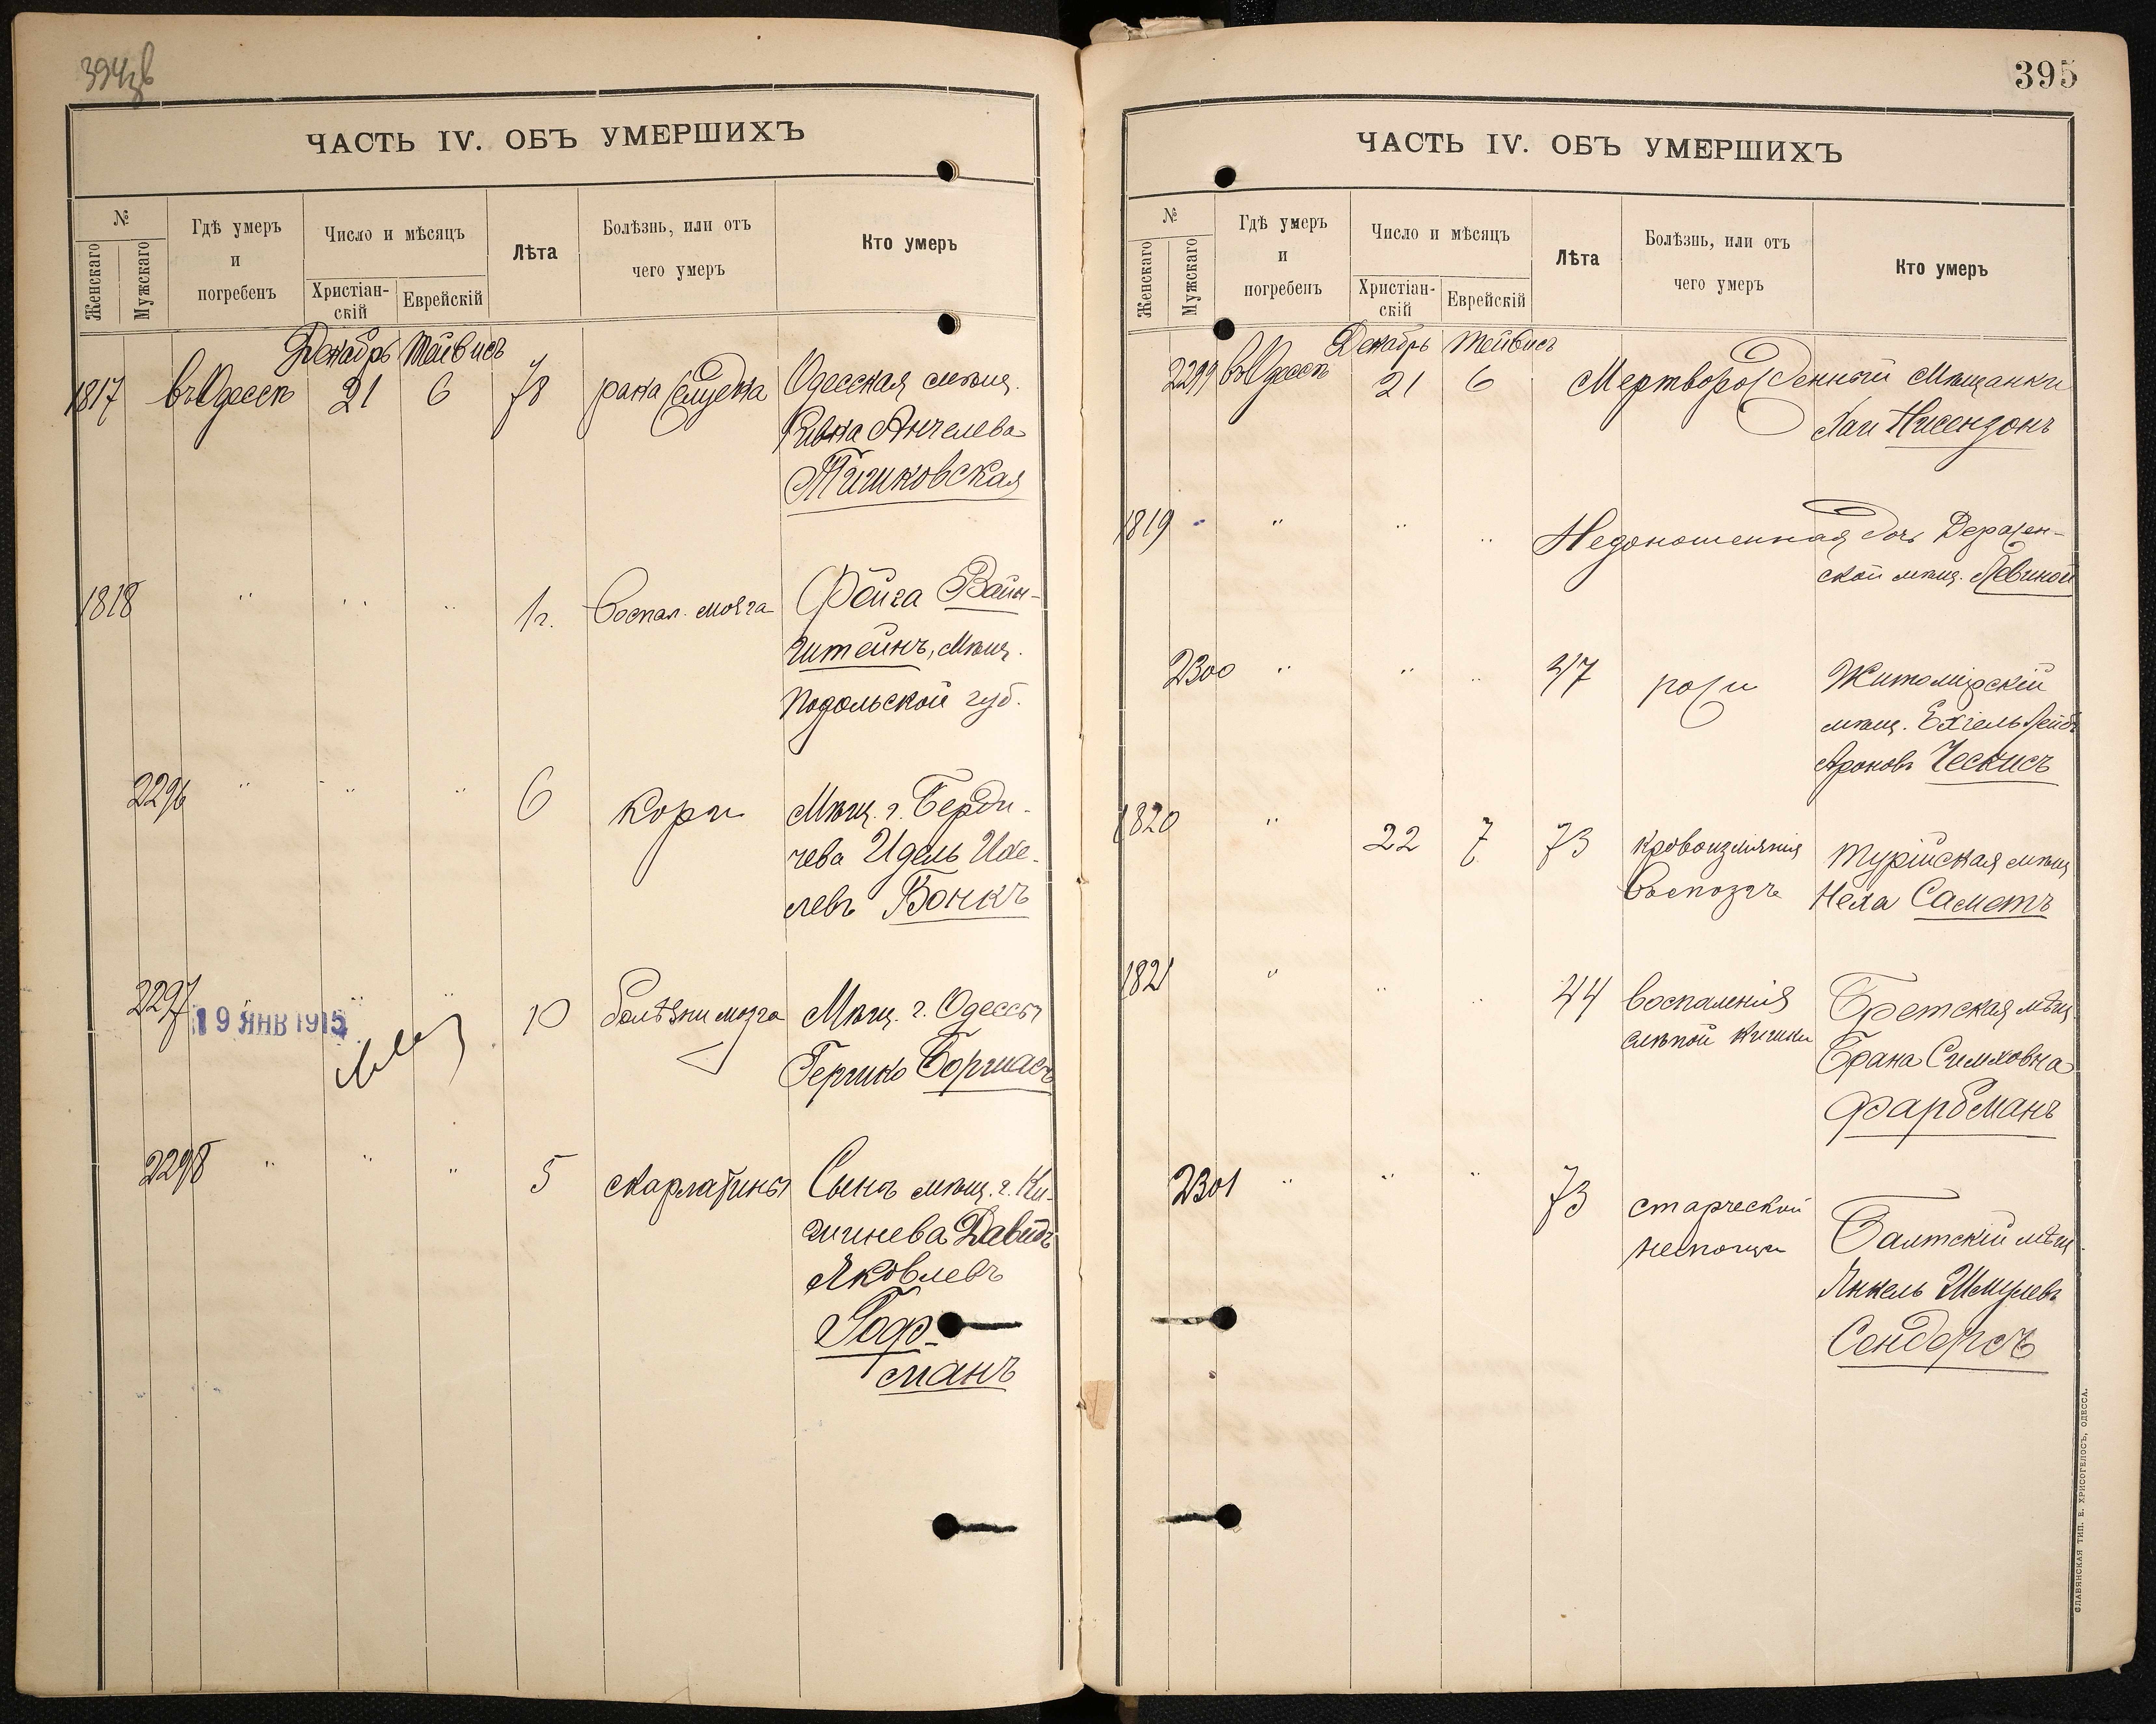 394зв
ЧАСТЬ IV. ОБЪ УМЕРШИХЪ
№
Женскаго
Мужскаго
Гдѣ умеръ
и
погребенъ
Число и мѣсяцъ
Христіан-
скій
Еврейскій
Лѣта
Болѣзнь, или отъ
чего умеръ
Кто умеръ
Декабрь Тейвисъ
1817 въ Одессѣ 21 6 78 рака желудка Одесская мѣщ.
Ривка Анчелева
Тишковская
1818 " " " 1 г. Воспал. мозга Фейга Вайн-
штейнъ, Мѣщ.
Подольской губ.
2296 " " " 6 кори Мѣщ. г. Берди-
чева Идель Ице-
левъ Бонкъ
2297 " " " 10 болѣзни мозга Мѣщ. г. Одессы
19 ЯНВ 1915
Гершко Боршасъ
2298 " " " 5 скарлатины Сынъ мѣщ. г. Ки-
шинева Давидъ
Яковлевъ
Гоф-
манъ
395
ЧАСТЬ IV. ОБЪ УМЕРШИХЪ
№
Женскаго
Мужскаго
Гдѣ умеръ
и
погребенъ
Число и мѣсяцъ
Христіан-
скій
Еврейскій
Лѣта
Болѣзнь, или отъ
чего умеръ
Кто умеръ
Декабрь Тейвисъ
2299 въ Одессѣ 21 6 Мертворожденный Мѣщанки
Хаи Нисензонъ
1819 " " " Недоношенная дочь Деражен-
ской мѣщ. Левиной
2300 " " " 47 рожи Житомірскій
мѣщ. Ехіель Лейбъ
Ароновъ Ческисъ
1820 " 22 7 73 кровоизліянія Турійская мѣщ
въ мозгъ Неха Саметъ
1821 " " " 44 воспаленія
слѣпой кишки
Брана Симховна
Фарбманъ
2301 " " " 73 старческой
немощи Балтскій мѣщ
Янкель Шмулевъ
Сендерсъ
СЛАВЯНСКАЯ ТИП. Е. ХРИСОГЕЛОСЪ, ОДЕССА.